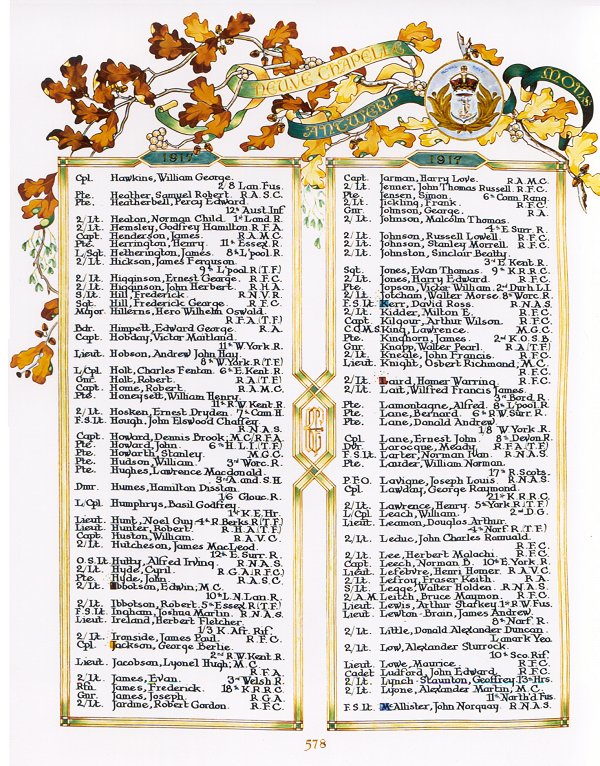 NEUVE CHAPELLE
ANTWERP
MONS
1917
Cpl. Hawkins, William George.
2/8 Lan. Fus.
Pte. Heather, Samuel Robert. R.A.S.C.
Pte. Heatherbell, Percy Edward.
12th Aust. Inf.
2/Lt. Heaton, Norman Child. 1st Lond. R.
2/Lt. Hemsley, Godfrey Hamilton. R.F.A.
Capt. Henderson, James. R.A.M.C.
Pte. Herrington, Henry. 11th Essex R.
L/Sgt. Hetherington, James. 8th L'pool R.
2/Lt. Hickson, James Ferguson.
9th L'pool R. (T.F.)
2/Lt. Higginson, Ernest George. R.F.C.
2/Lt. Higginson, John Herbert. R.H.A.
S/Lt. Hill, Frederick. R.N.V.R.
Sgt. Hill, Frederick George. R.F.C.
Major. Hillerns, Hero Wilhelm Oswald.
R.F.A. (T.F.)
Bdr. Himpett, Edward George. R.A.
Capt. Hobday, Victor Maitland.
11th W. York. R.
Lieut. Hobson, Andrew John Hay.
8th W. York. R. (T.F.)
L/Cpl. Holt, Charles Fenton. 6th E. Kent. R.
Gnr. Holt, Robert. R.A. (T.F.)
Capt. Home, Robert. R.A.M.C.
Pte. Honeysett, William Henry.
11th R.W. Kent. R.
2/Lt. Hosken, Ernest Dryden. 7th Cam. H.
F.S.Lt. Hough, John Elswood Chaffey.
R.N.A.S.
Capt. Howard, Dennis Brook; M.C. R.F.A.
Pte. Howard, John. 6th H.L.I. (T.F.)
Pte. Howarth, Stanley. M.G.C.
Pte. Hudson, William. 3rd Worc. R.
Pte. Hughes, Lawrence Macdonald.
3rd A. and S.H.
Dmr. Humes, Hamilton Disston.
1/6 Glouc. R.
L/Cpl. Humphrys, Basil Godfrey.
1st K.E. Hr.
Lieut. Hunt, Noel Guy. 4th R. Berks. R. (T.F.)
Lieut. Hunter, Robert. R.H.A. (T.F.)
Capt. Huston, William. R.A.V.C.
2/Lt. Hutcheson, James MacLeod.
12th E. Surr. R.
O.S.Lt. Hutty, Alfred Irving. R.N.A.S.
2/Lt. Hyde, Cyril. R.G.A. (R.F.C.)
Pte. Hyde, John. R.A.S.C.
2/Lt. Ibbotson, Edwin, M.C.
10th L.N. Lan. R.
2/Lt. Ibbotson, Robert. 5th Essex R. (T.F.)
F.S.Lt. Ingham, Joshua Martin. R.N.A.S.
Lieut. Ireland, Herbert Fletcher.
1/3 K. Aft. Rif.
2/Lt. Ironside, James Paul. R.F.C.
Cpl. Jackson, George Berlie.
2nd R.W. Kent. R.
Lieut. Jacobson, Lyonel Hugh; M.C.
R.F.A.
2/Lt. James, Evan. 3rd Welsh R.
Rfn. James, Frederick. 18th K.R.R.C.
Gnr. James, Joseph. R.G.A.
2/Lt. Jardine, Robert Gordon. R.F.C.
1917
Capt. Jarman, Harry Love. R.A.M.C.
2/Lt. Jenner, John Thomas Russell. R.F.C.
Pte. Jensen, Simon. 6th Conn. Rang.
2/Lt. Jickling, Frank. R.F.C.
Gnr. Johnson, George. R.A.
2/Lt. Johnson, Malcolm Thomas.
4th E. Surr. R.
2/Lt. Johnson, Russell Lowell. R.F.C.
2/Lt. Johnson, Stanley Morrell. R.F.C.
2/Lt. Johnston, Sinclair Beatty.
3rd E. Kent R.
Sgt. Jones, Evan Thomas. 9th K.R.R.C.
2/Lt. Jones, Harry Edward. R.F.C.
Pte. Jopson, Victor William. 2nd Durh. L.I.
2/Lt. Jotcham, Walter Morse. 8th Worc. R.
F.S.Lt. Kerr, David Ross. R.N.A.S.
2/Lt. Kidder, Milton E. R.F.C.
Capt. Kilgour, Arthur Wilson. R.F.C.
C.Q.M.S. King, Lawrence. M.G.C.
Pte. Kinghorn, James. 2nd K.O.S.B.
Gnr. Knapp, Walter Pearl. R.A. (T.F.)
2/Lt. Kneale, John Francis. R.F.C.
Lieut. Knight, Osbert Richmond, M.C.
R.F.C.
2/Lt. Laird, Homer Warring. R.F.C.
2/Lt. Lait, Wilfred Francis James.
3rd Bord. R.
Pte. Lamontagne, Alfred. 8th L'pool R.
Pte. Lane, Bernard. 6th R.W. Surr. R.
Pte. Lane, Donald Andrew.
1/8 W. York. R.
Cpl. Lane, Ernest John. 8th Devon. R.
Dvr. Larocque, Meady. R.F.A. (T.F.)
F.S.Lt. Larter, Norman Ivan. R.N.A.S.
Pte. Lauder, William Norman.
17th R. Scots.
P.F.O. Lavigne, Joseph Louis. R.N.A.S.
Cpl. Lawday, George Raymond.
21st K.R.R.C.
2/Lt. Lawrence, Henry. 5th York. R. (T.F.)
L/Cpl. Leach, William. 2nd D.G.
Lieut. Leamon, Douglas Arthur.
4th Norf. R. (T.F.)
2/Lt. Leduc, John Charles Romuald.
R.F.C.
2/Lt. Lee, Herbert Malachi. R.F.C.
Capt. Leech, Norman B. 10th E. York. R.
Lieut. Lefebvre, Henri Homer. R.A.V.C.
2/Lt. Lefroy, Fraser Keith. R.A.
S/Lt. Legge, Walter Holden. R.N.A.S.
2.A.M. Leitch, Bruce Magnon. R.F.C.
Lieut. Lewis, Arthur Starkey. 1st R.W. Fus.
Lieut. Lewton-Brain, James Andrew.
8th Norf. R.
2/Lt. Little, Donald Alexander Duncan.
Lanark Yeo.
2/Lt. Low, Alexander Sturrock.
10th Sco. Rif.
Lieut. Lowe, Maurice. R.F.C.
Cadet Ludford, John Edward. R.F.C.
2/Lt. Lynch-Staunton, Geoffrey. 13th Hrs.
2/Lt. Lyone, Alexander Martin, M.C.
11th North'd. Fus.
F.S.Lt. McAllister, John Norquay. R.N.A.S.
578